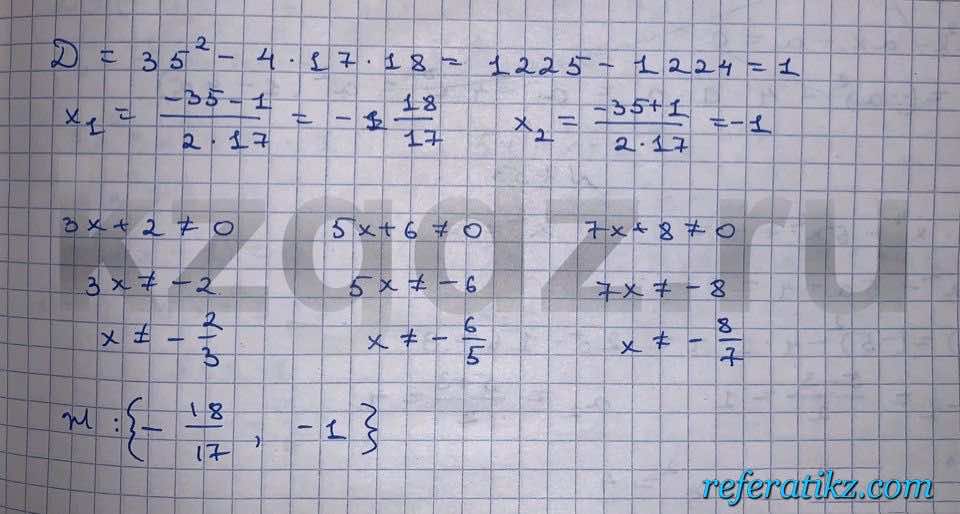 D = 35² - 4 · 17 · 18 = 1225 - 1224 = 1
x₁ = (-35 - 1)/(2 · 17) = - 18/17 x₂ = (-35 + 1)/(2 · 17) = -1
3x + 2 ≠ 0 5x + 6 ≠ 0 7x + 8 ≠ 0
3x ≠ -2 5x ≠ -6 7x ≠ -8
x ≠ - 2/3 x ≠ - 6/5 x ≠ - 8/7
M : {- 18/17 , -1}
kzgdz.ru
referatikz.com